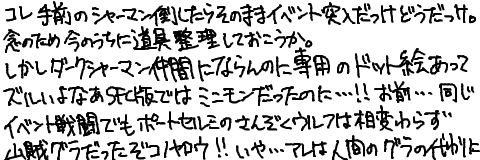 コレ手前のシャーマン倒したらそのままイベント突入だっけどうだっけ。
念のため今のうちに道具整理しておこうか。
しかしダークシャーマン仲間にならんのに専用のドット絵あって
ズルいよなあSFC版ではミニモンだったのに…!!お前…同じ
イベント戦闘でもポートセルミのさんぞくウルフは相変わらず
山賊グラだったぞコノヤロウ!!いや…アレは人間のグラの代わりに